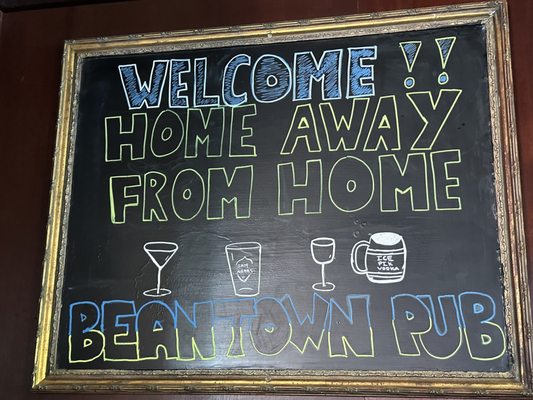 WELCOME!!
HOME AWAY
FROM HOME
SAM
ADAMS
ICE
PIK
VODKA
BEANTOWN PUB